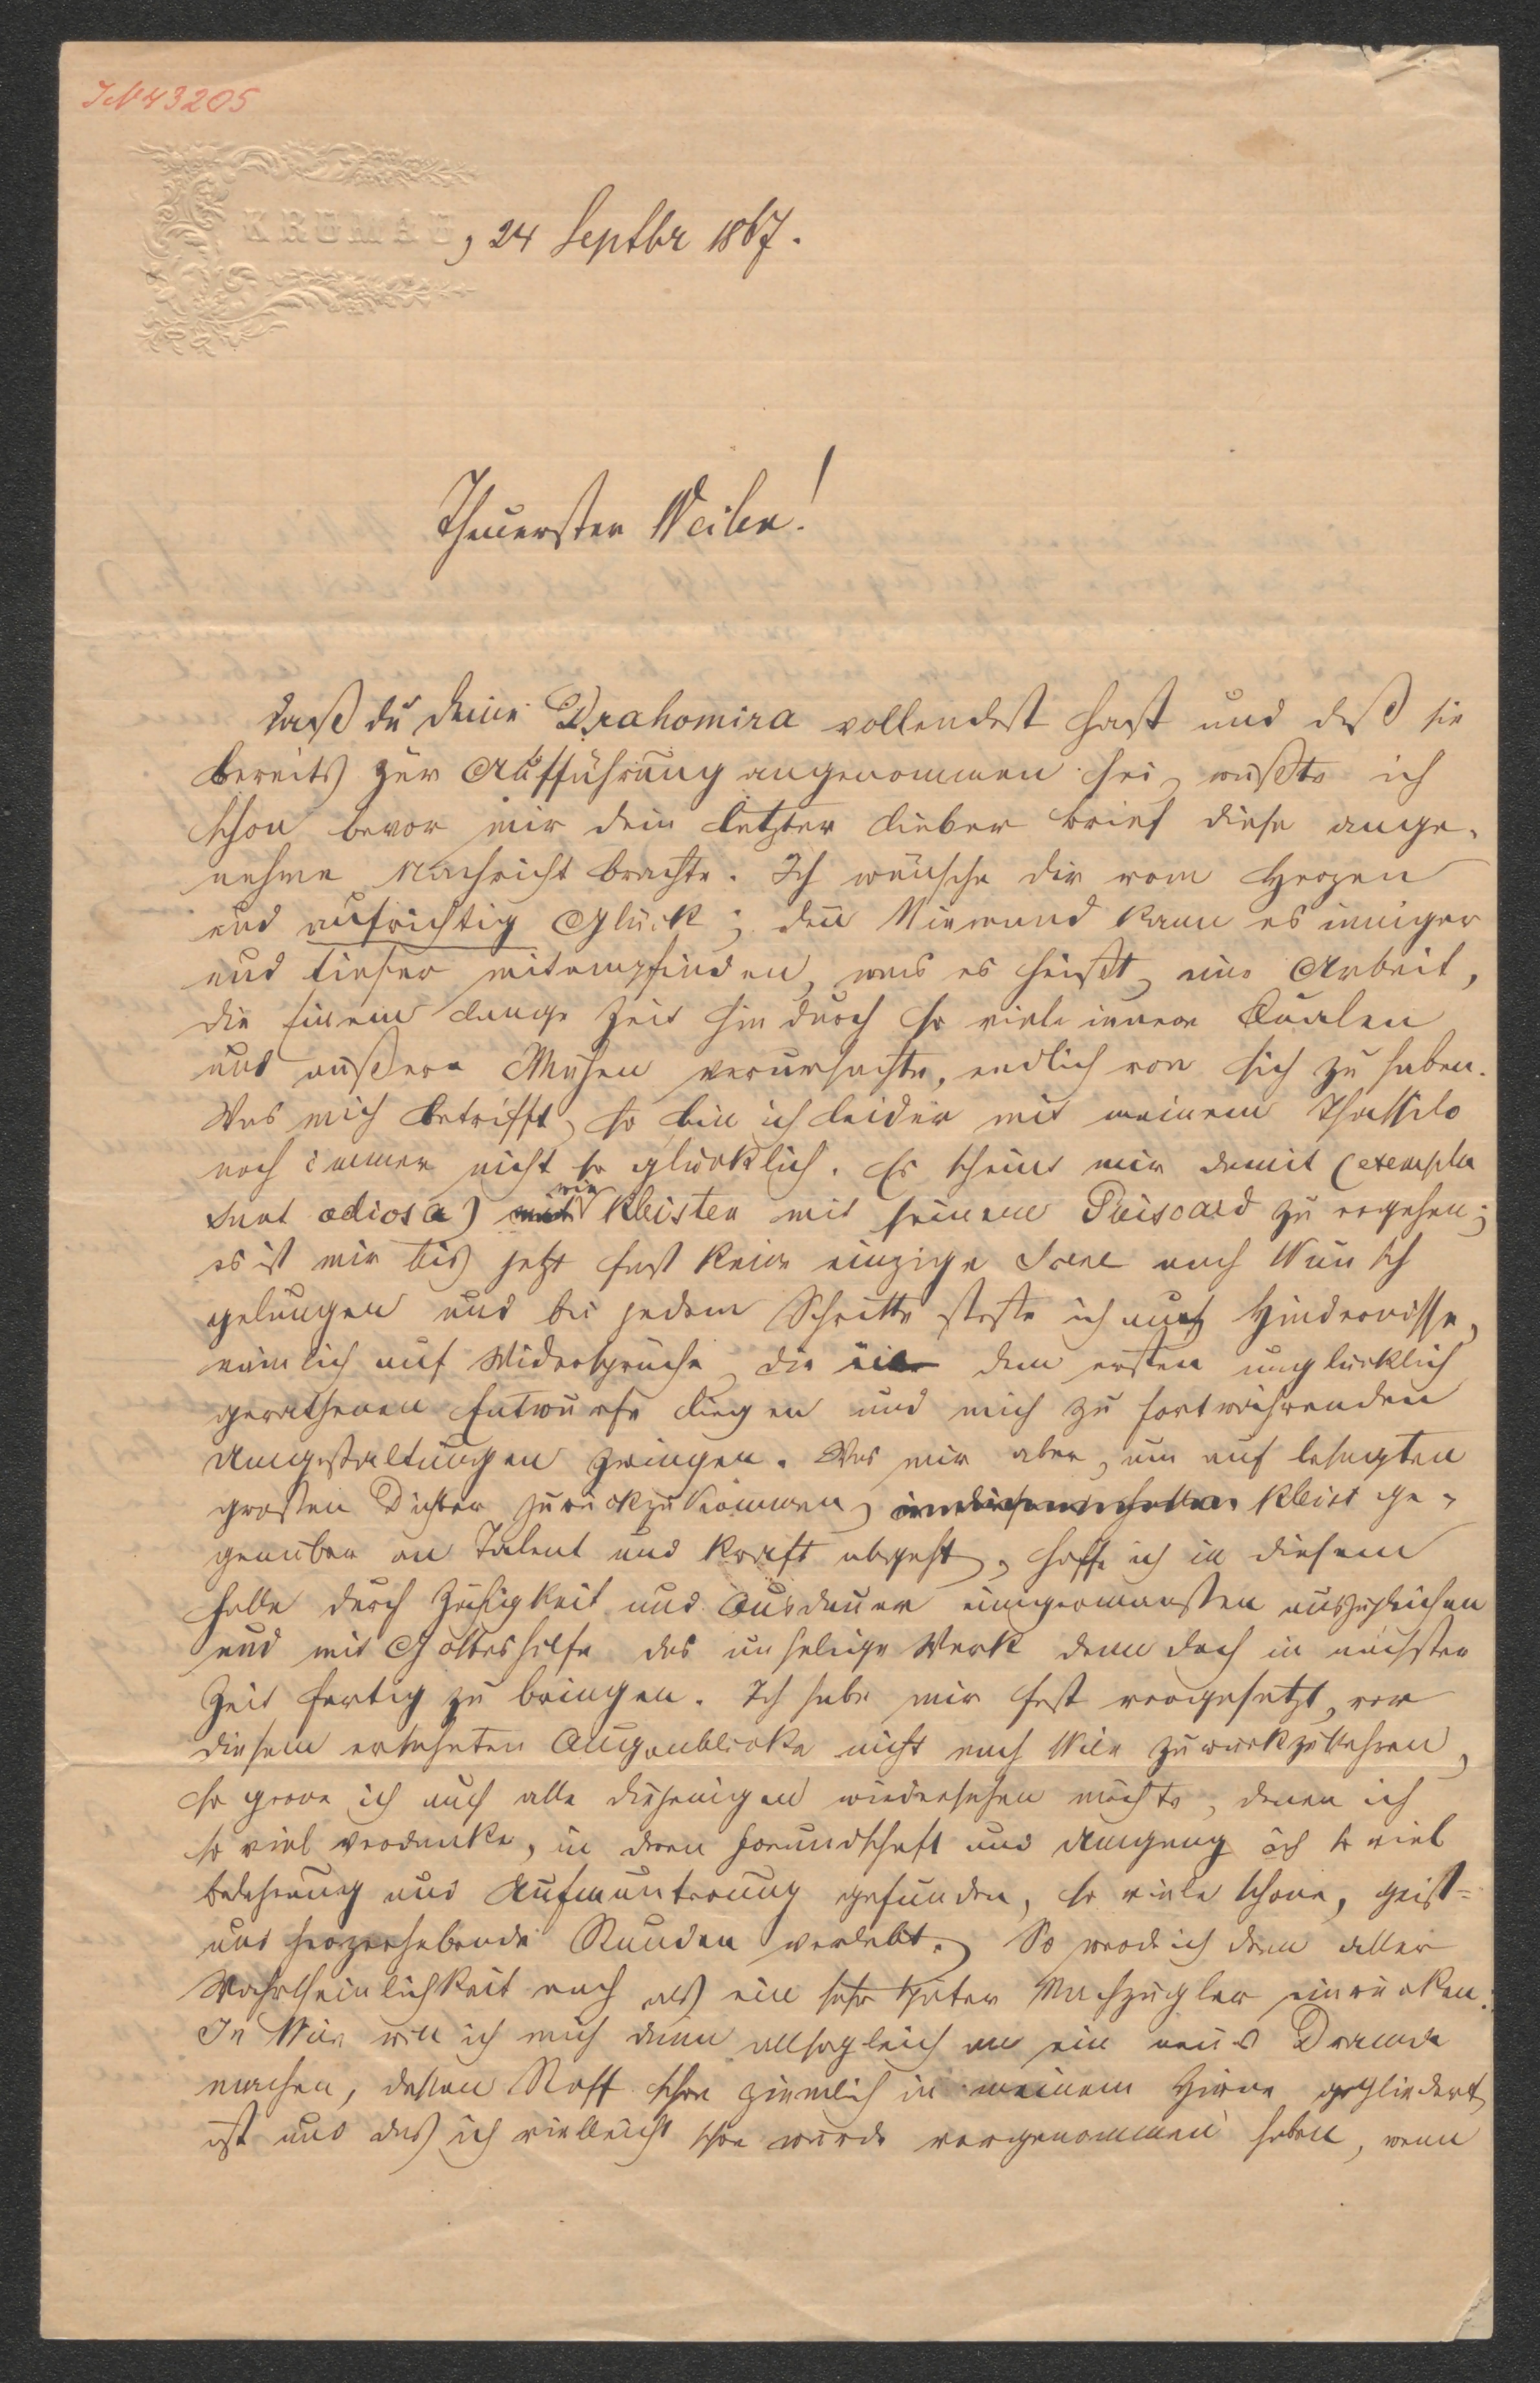 JN 43205
KRUMAU, 24 Septbr 1867.
Theuerster Weilen!
Daß du deine Drahomira vollendest hast und daß sie
bereits zur Aufführung angenommen sei, wußte ich
schon bevor mir dein letzter lieber Brief diese ange-
nehme Nachricht brachte. Ich wünsche dir vom Herzen
und aufrichtig Glück; den Niemand kann es inniger
und tiefer mitempfinden, was es heißt, eine Arbeit,
die Einem lange Zeit hindurch so viele innere Qualen
und äußere Mühen verursachte, endlich von sich zu haben.
Was mich betrifft, so bin ich leider mit meinem Thassilo
noch immer nicht so glücklich. Es scheint mir damit (exempla
sunt odiosa) wie Kleisten mit seinem Guiscard zu ergehen;
es ist mir bis jetzt fast keine einzige Scene nach Wunsch
gelungen und bei jedem Schritte stoße ich auf Hindernisse,
nämlich auf Widersprüche, die in dem ersten unglücklich
gerathenen Entwurfe liegen und mich zu fortwährenden
Umgestaltungen zwingen. Was mir aber, um auf besagten
großen Dichter zurückzukommen, Kleist ge-
genüber an Talent und Kraft abgeht, hoffe ich in diesem
Falle durch Zähigkeit und Ausdauer einigermaßen auszugleichen
und mit Gotteshilfe das unselige Werk denn doch in nächster
Zeit fertig zu bringen. Ich habe mir fest vorgesetzt, vor
diesem ersehnten Augenblicke nicht nach Wien zurückzukehren,
so gerne ich auch alle diejenigen wiedersehen möchte, denen ich
so viel verdanke, in deren Freundschaft und Umgang ich so viel
Belehrung und Aufmunterung gefunden, so viele schöne, geist-
und herzerhebende Stunden verlebt. So werde ich denn aller
Wahrscheinlichkeit nach als ein sehr später Nachzügler einrücken.
In Wien will ich mich dann allsogleich an ein neues Drama
machen, dessen Stoff schon ziemlich in meinem Hirne gegliedert
ist und das ich vielleicht schon würde vorgenommen haben, wenn